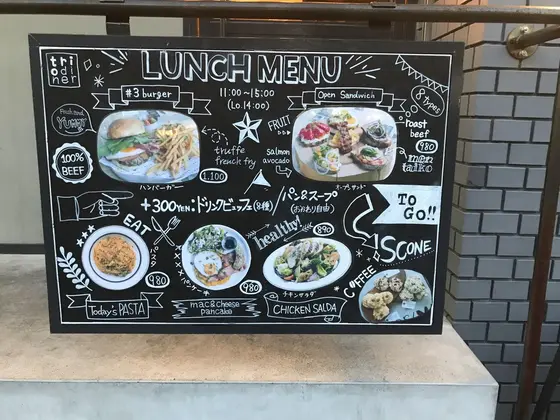 trion
diner
LUNCH MENU
11:00~15:00
(Lo.14:00)
#3 burger
Open Sandwich
8 Types
Fresh and
YUMMY
100%
BEEF
truffe
french fry
1,100
ハンバーガー
FRUIT
salmon
avocado
roast
beef
980
オープンサンド
+300YEN.ドリンクビュッフェ(8種)/パン&スープ
(おかわり自由)
TO
GO!!
EAT
パスタ
980
Today's PASTA
パンケーキ
980
mac&cheese
pancake
healthy!
890
チキンサラダ
CHICKEN SALDA
SCONE
COFFEE